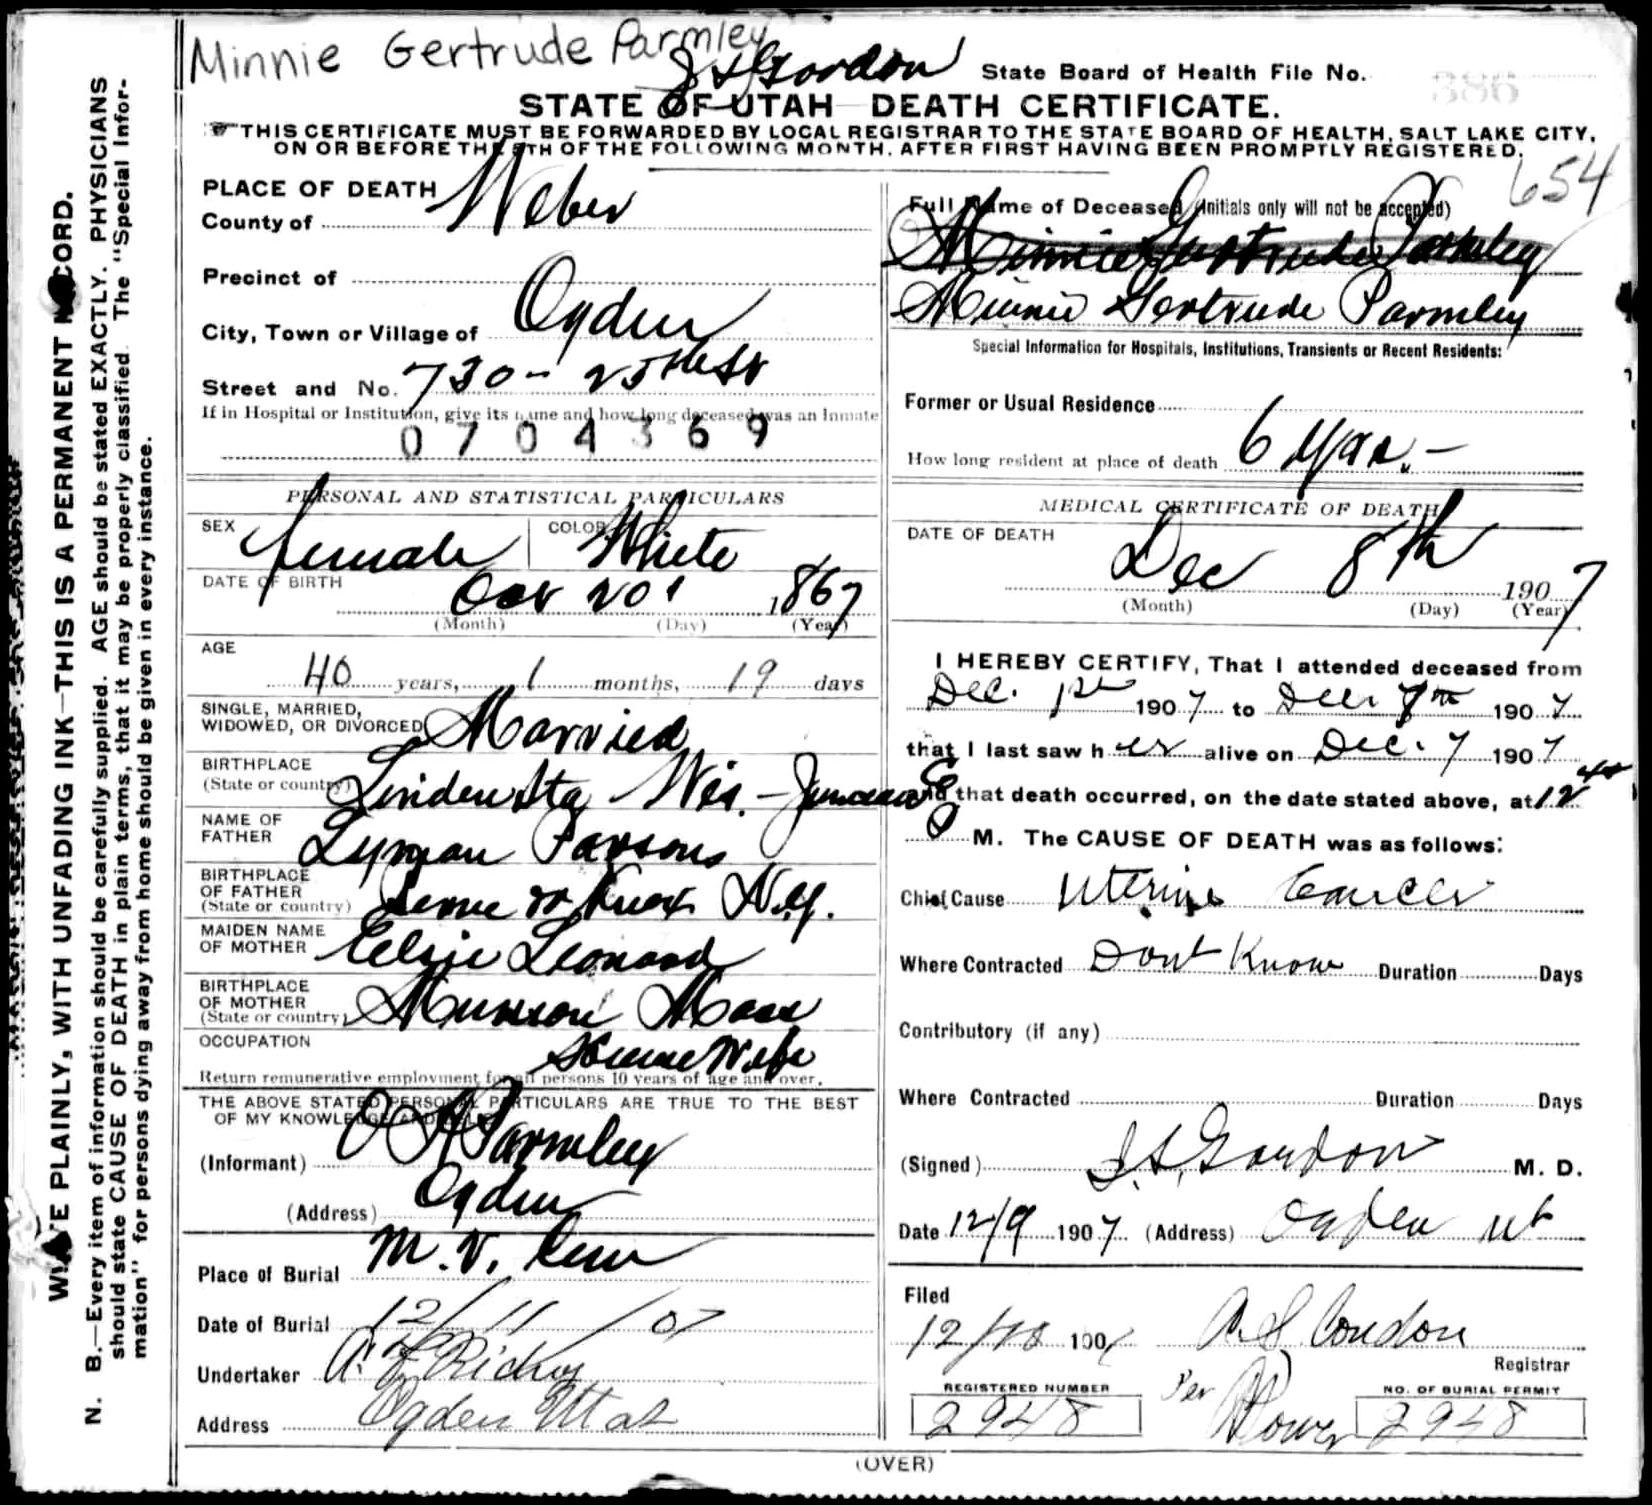 Minnie Gertrude Parmley
Gordon
State Board of Health File No. 386
STATE OF UTAH DEATH CERTIFICATE.
THIS CERTIFICATE MUST BE FORWARDED BY LOCAL REGISTRAR TO THE STATE BOARD OF HEALTH, SALT LAKE CITY,
ON OR BEFORE THE 5TH OF THE FOLLOWING MONTH, AFTER FIRST HAVING BEEN PROMPTLY REGISTERED.
654
WRITE PLAINLY, WITH UNFADING INK—THIS IS A PERMANENT RECORD.
N. B.—Every item of information should be carefully supplied. AGE should be stated EXACTLY. PHYSICIANS
should state CAUSE OF DEATH in plain terms, that it may be properly classified. The "Special Infor-
mation" for persons dying away from home should be given in every instance.
PLACE OF DEATH
County of Weber
Precinct of
City, Town or Village of Ogden
Street and No. 730 - 25th St
If in Hospital or Institution, give its name and how long deceased was an Inmate
0704369
PERSONAL AND STATISTICAL PARTICULARS
SEX female COLOR White
DATE OF BIRTH
20 1867
(Month) (Day) (Year)
AGE
40 years, 1 months, 19 days
SINGLE, MARRIED,
WIDOWED, OR DIVORCED Married
BIRTHPLACE
(State or country) Linden Sta Wis. - Juneau Co
NAME OF
FATHER Lyman Parsons
BIRTHPLACE
OF FATHER
(State or country) N.Y.
MAIDEN NAME
OF MOTHER Elsie Leonard
BIRTHPLACE
OF MOTHER
(State or country) Munson Mass
OCCUPATION House Wife
Return remunerative employment for all persons 10 years of age and over.
THE ABOVE STATED PERSONAL PARTICULARS ARE TRUE TO THE BEST
OF MY KNOWLEDGE AND BELIEF
(Informant) O A Parmley
(Address) Ogden
Place of Burial M. V. Cem
Date of Burial 12/11/07
Undertaker Richey
Address Ogden Utah
Full Name of Deceased (Initials only will not be accepted)
Minnie Gertrude Parmley
Minnie Gertrude Parmley
Special Information for Hospitals, Institutions, Transients or Recent Residents:
Former or Usual Residence
How long resident at place of death 6 yrs. -
MEDICAL CERTIFICATE OF DEATH
DATE OF DEATH
Dec 8th 1907
(Month) (Day) (Year)
I HEREBY CERTIFY, That I attended deceased from
Dec. 1st 1907 to Dec 7th 1907
that I last saw her alive on Dec. 7 1907
and that death occurred, on the date stated above, at 12 45
M. The CAUSE OF DEATH was as follows:
Chief Cause Uterine Cancer
Where Contracted Dont Know Duration Days
Contributory (if any)
Where Contracted Duration Days
(Signed) Gordon M. D.
Date 12/9 1907 (Address) Ogden Ut
Filed
12/10 190 Condon
Registrar
REGISTERED NUMBER
2948
Per
NO. OF BURIAL PERMIT
2948
(OVER)